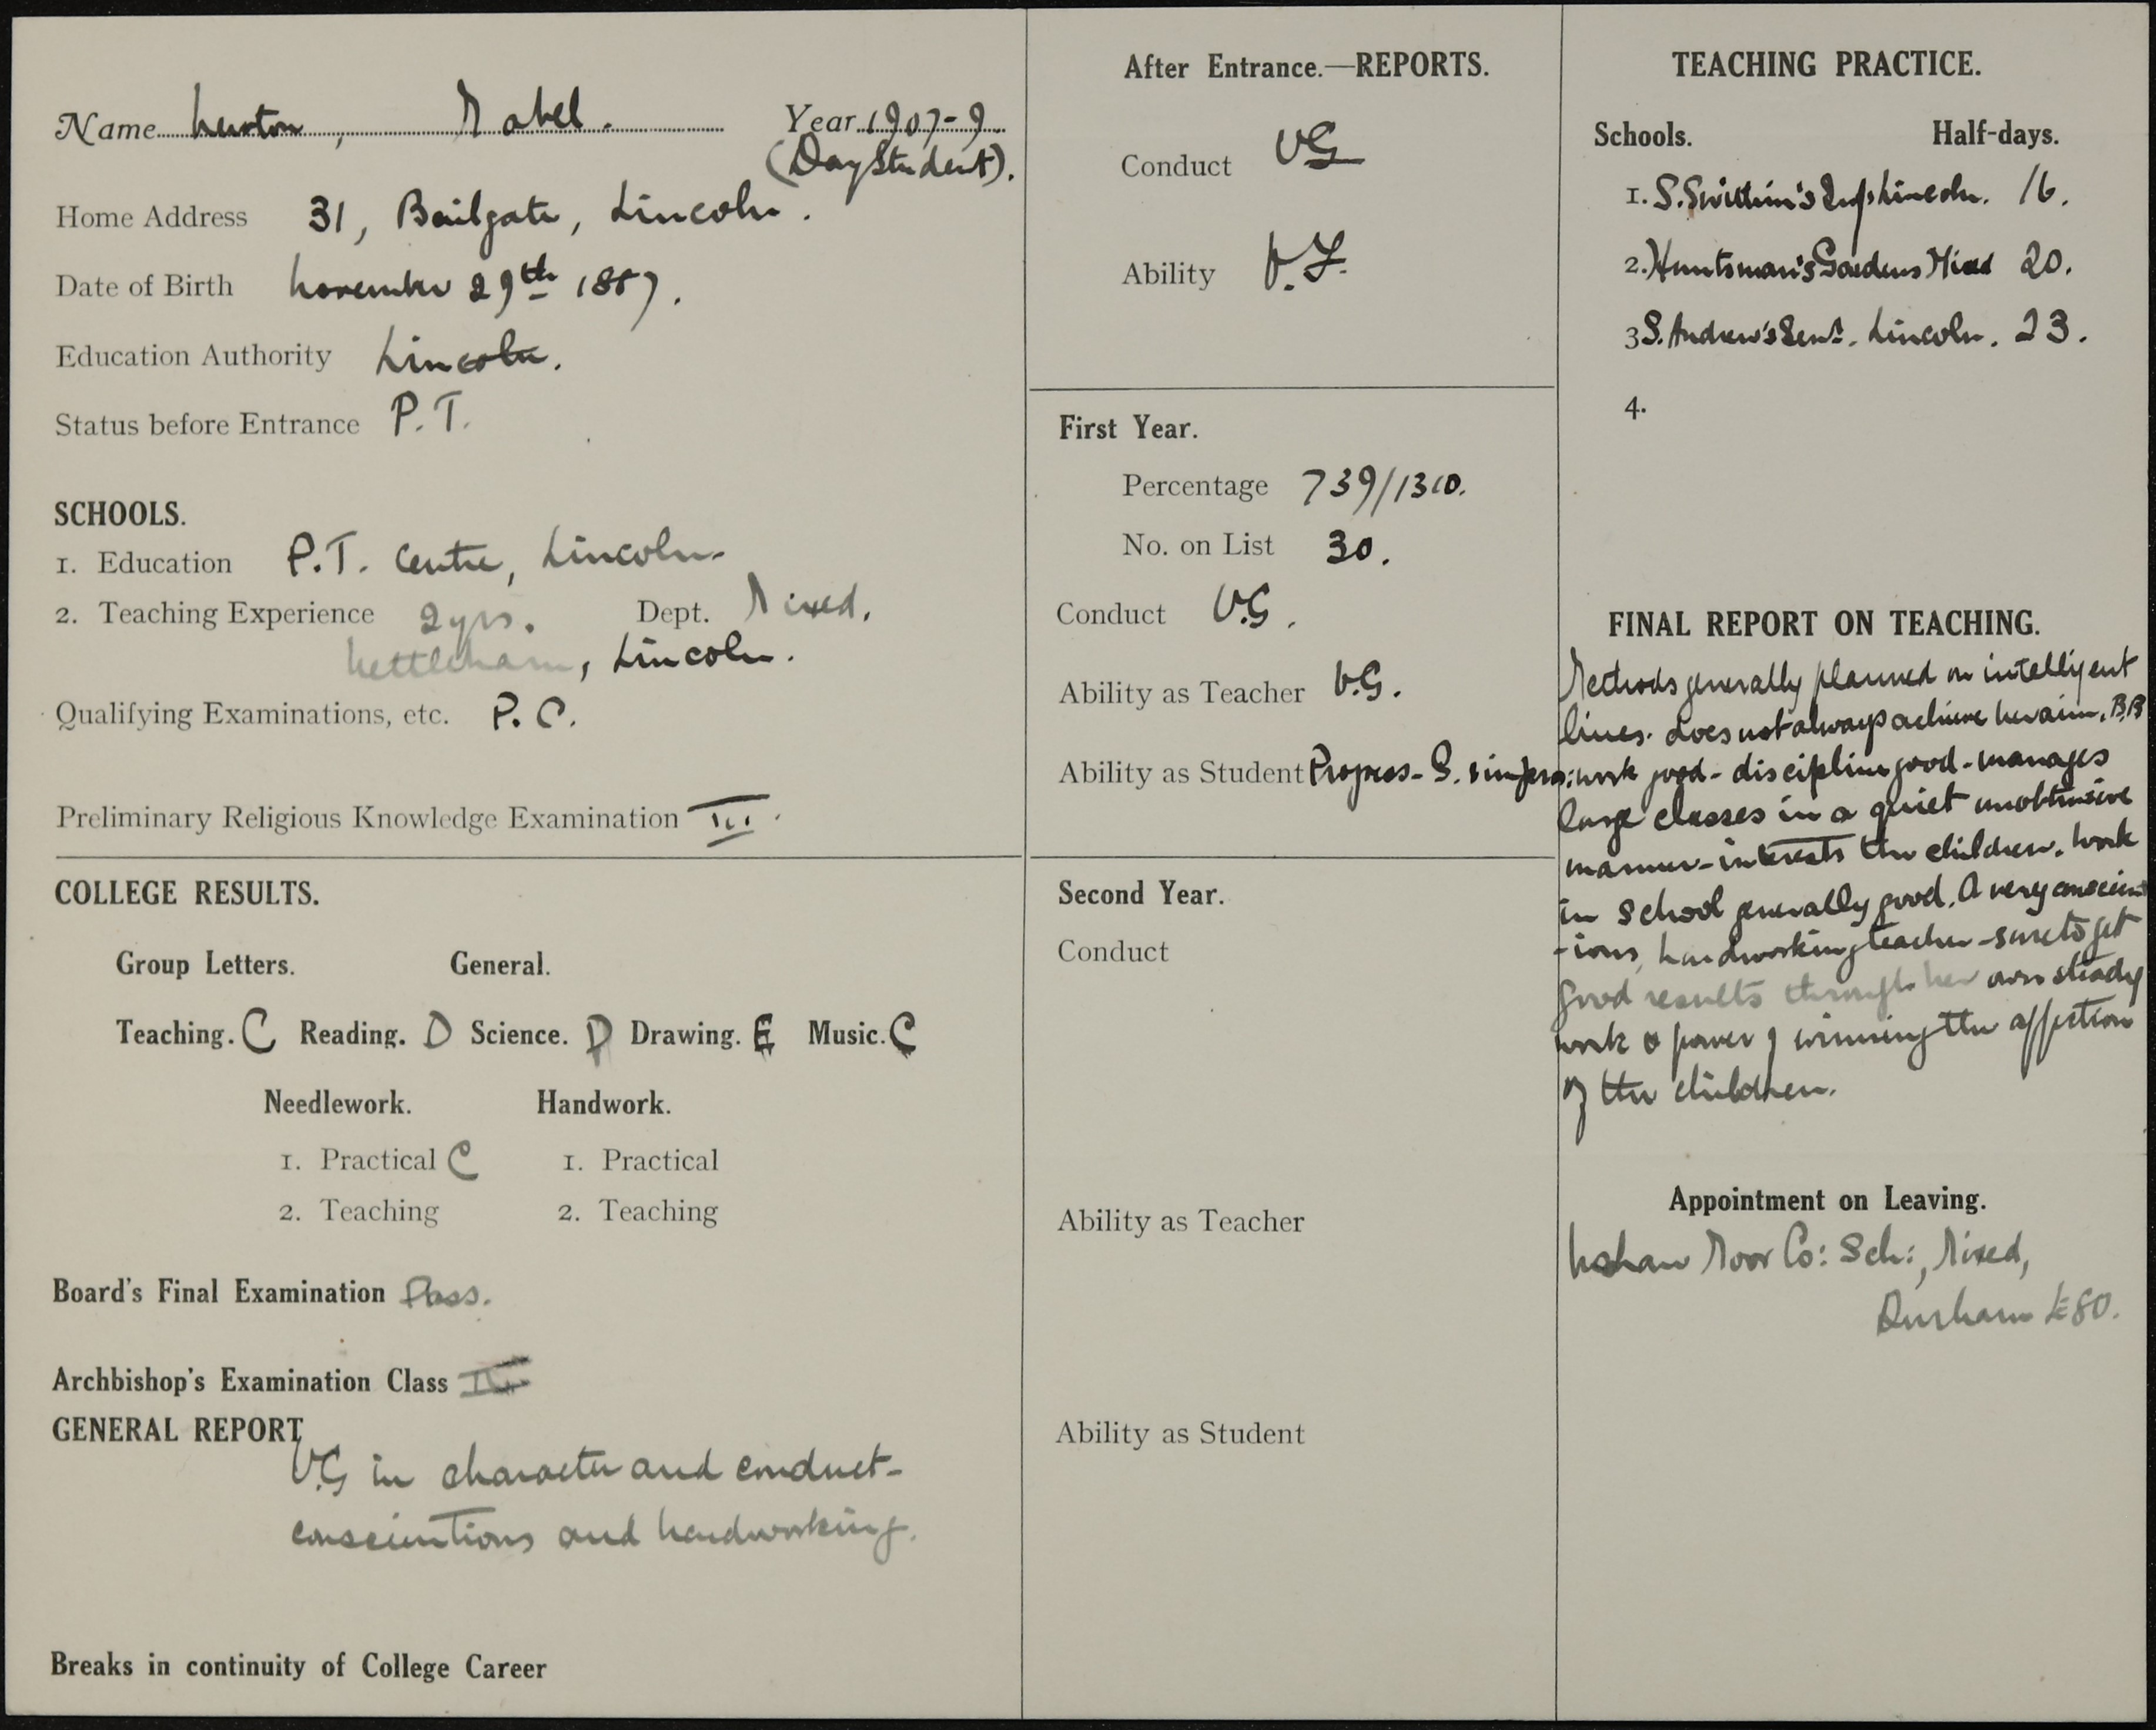 Name Newton, Mabel. Year 1907-9.
(Day Student).
Home Address 31, Bailgate, Lincoln.
Date of Birth November 29th 1887.
Education Authority Lincoln.
Status before Entrance P.T.
SCHOOLS.
1. Education P.T. Centre, Lincoln.
2. Teaching Experience 2 yrs. Dept. Mixed.
Nettleham, Lincoln.
Qualifying Examinations, etc. P.C.
Preliminary Religious Knowledge Examination III.
COLLEGE RESULTS.
Group Letters. General.
Teaching. C Reading. D Science. D Drawing. E Music. C
Needlework. Handwork.
1. Practical C 1. Practical
2. Teaching 2. Teaching
Board's Final Examination Pass.
Archbishop's Examination Class
GENERAL REPORT
V.G in character and conduct-
conscientious and hardworking.
Breaks in continuity of College Career
After Entrance.—REPORTS.
Conduct VG
Ability V.F.
First Year.
Percentage 739/1310.
No. on List 30.
Conduct V.G.
Ability as Teacher V.G.
Ability as Student Progress- G.
Second Year.
Conduct
Ability as Teacher
Ability as Student
TEACHING PRACTICE.
Schools. Half-days.
1. S. Swithin's Infs Lincoln. 16.
2. Huntsman's Gardens Mixed 20.
3 S. Andrew's Senr. Lincoln. 23.
4.
FINAL REPORT ON TEACHING.
Methods generally planned on intelligent
lines. does not always achieve her aim. B.B
work good - discipline good - manages
large classes in a quiet unobtrusive
manner - interests the children. Work
in school generally good. A very conscient
-ious, hardworking teacher - sure to get
good results through her own steady
work & power of winning the affection
of the children.
Appointment on Leaving.
Ushaw Moor Co: Sch:, Mixed,
Durham £80.